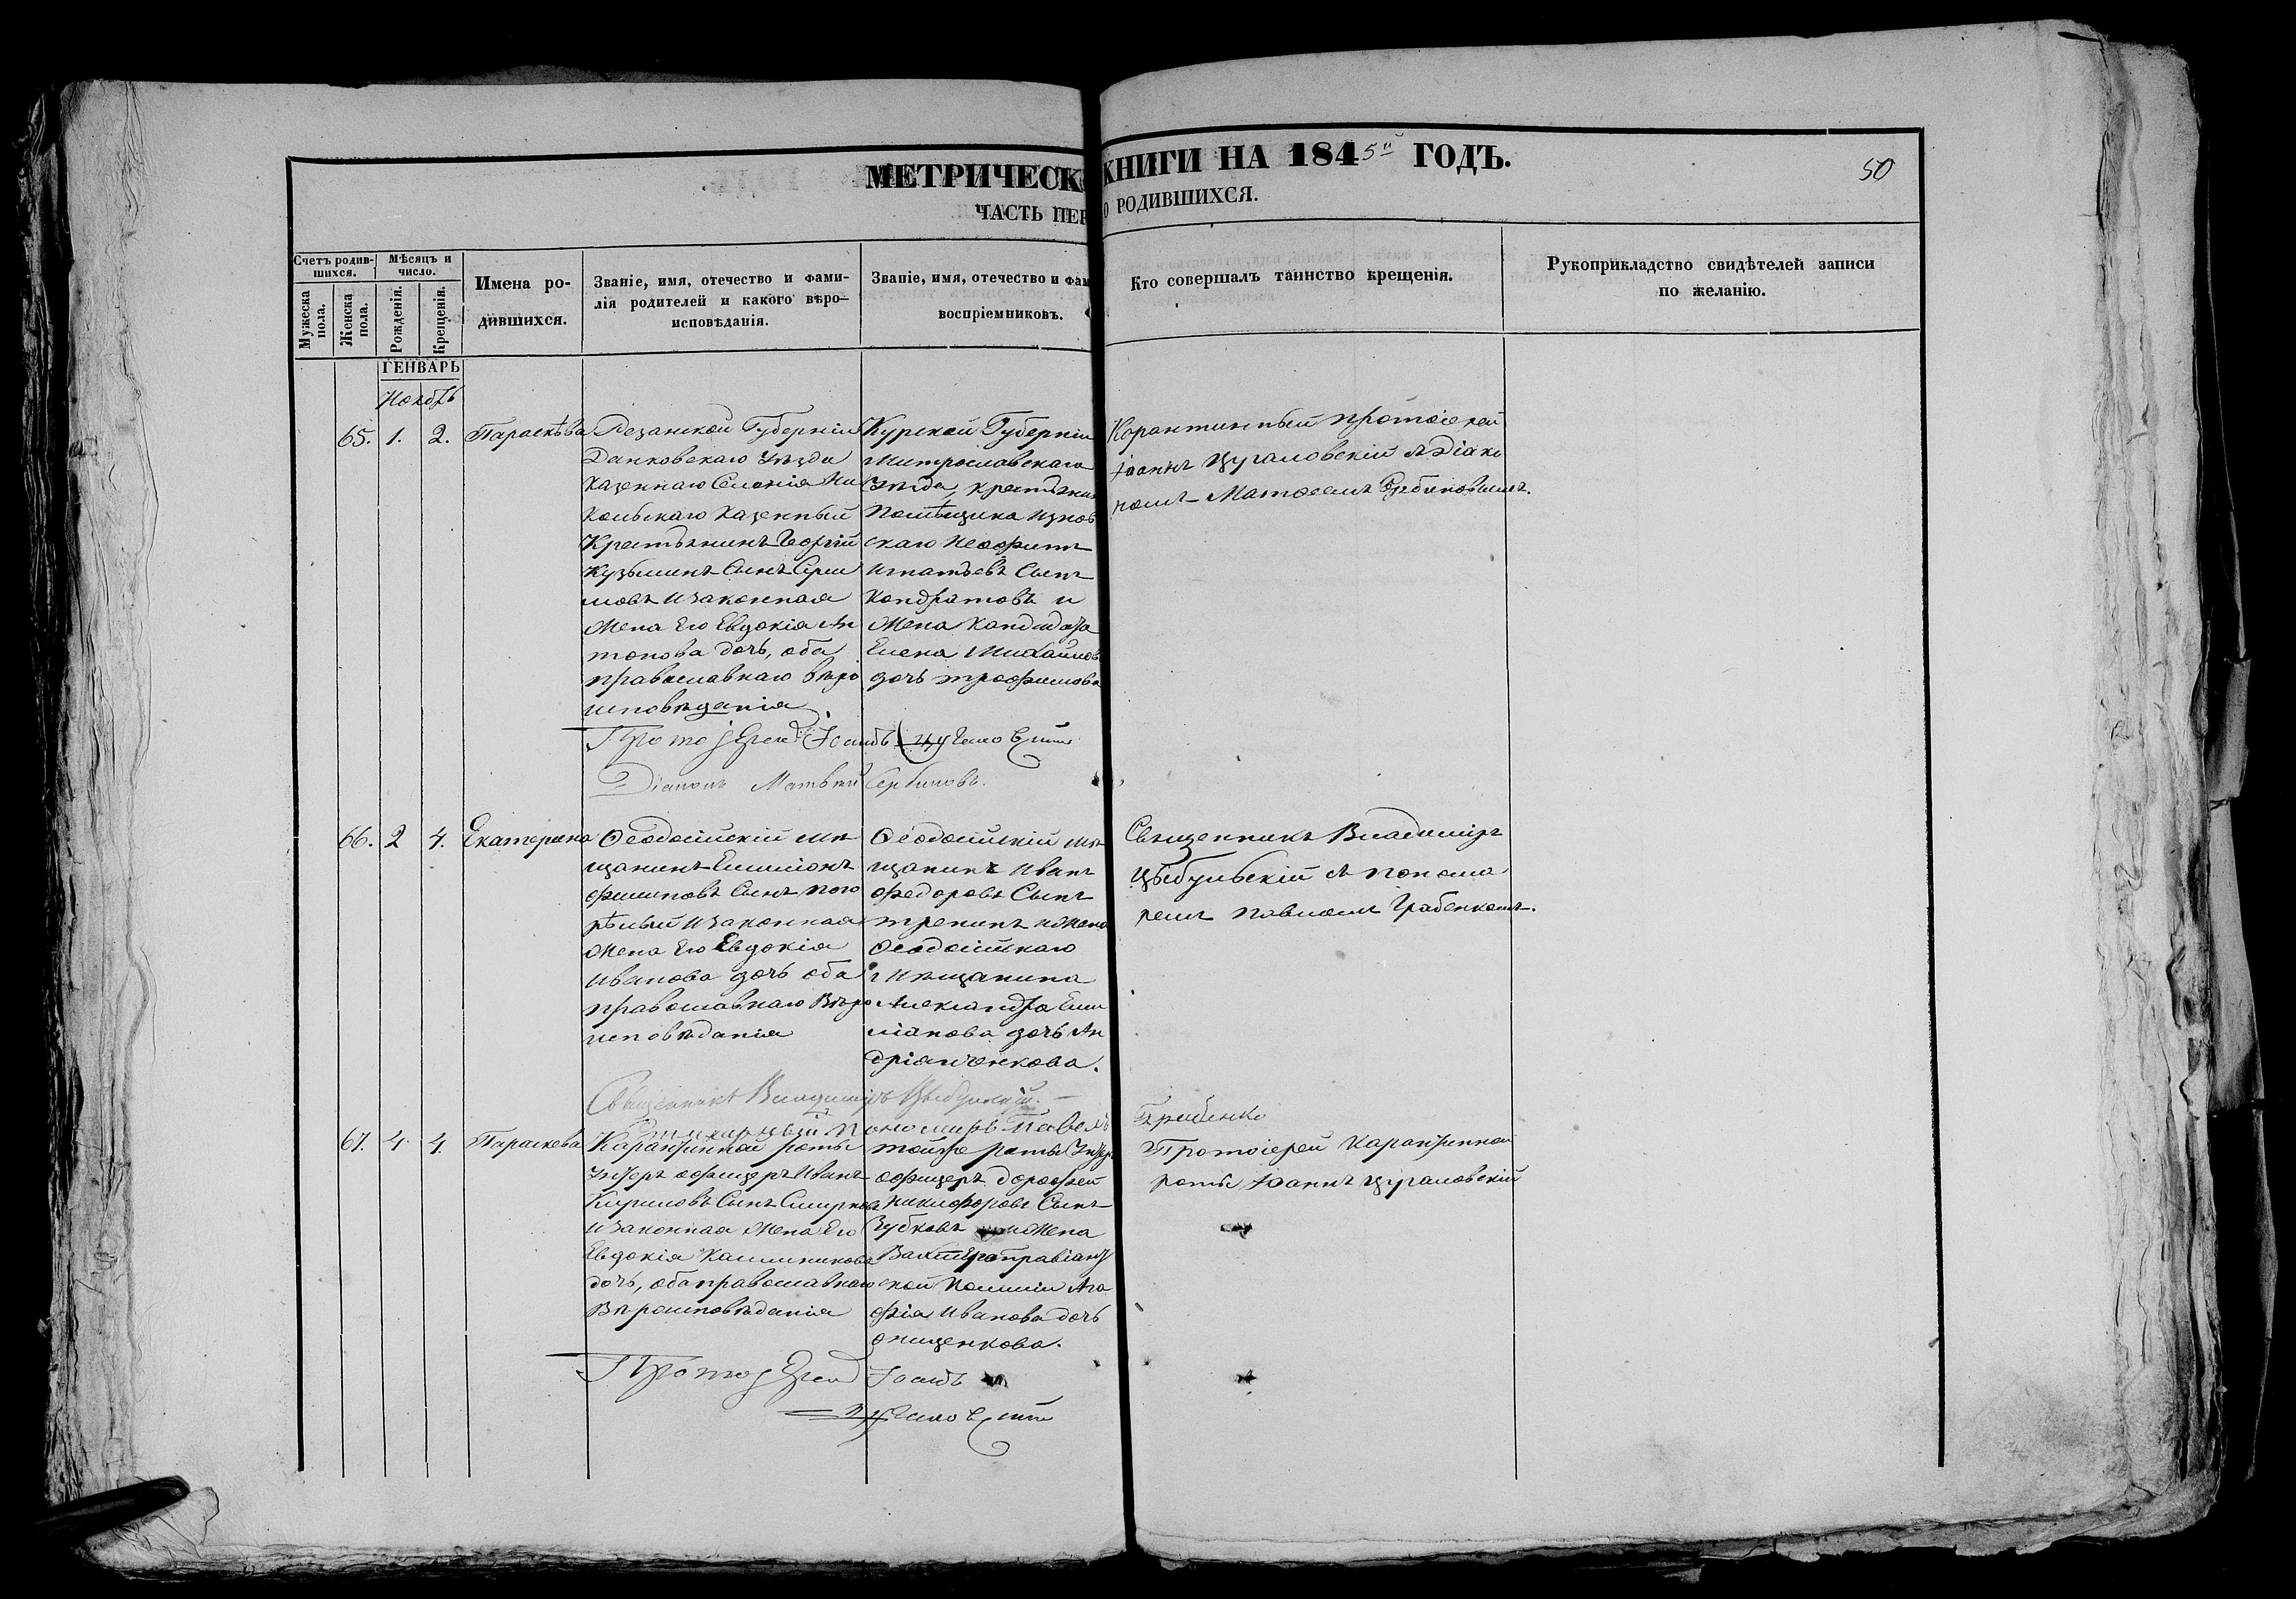 МЕТРИЧЕСК КНИГИ НА 1845й ГОДЪ.
50
ЧАСТЬ ПЕР О РОДИВШИХСЯ.
Счетъ родив-
шихся.
Мужеска
пола.
Женска
пола.
Мѣсяцъ и
число.
Рожденія.
Крещенія.
Имена ро-
дившихся.
Званіе, имя, отечество и фами-
лія родителей и какого вѣро-
исповѣданія.
Званіе, имя, отечество и фам
воспріемниковъ.
Кто совершалъ таинство крещенія.
Рукоприкладство свидѣтелей записи
по желанію.
ГЕНВАРЬ
Ноябрь
65. 1. 2. Параскѣва
Резанской Губерніи
Данковскаго Уѣзда
Казеннаго Селенія Ни
кольскаго Казенный
Крестьянинъ Георгій
Кузьминъ Сынъ
мовъ и законная
Жена Его Евдокія Ан
тонова дочь, оба
православнаго вѣро
исповѣданія
Курской Губерніи
Уѣзда, крестьянин
Помѣщика
скаго Неофитъ
Игнатьевъ Сынъ
Кондратовъ и
Жена Кандидата
Елена Михайлов
дочь Трофимова
Карантинный протоіерей
Іоаннъ Цугаловскій съ Діако
номъ Матвеемъ Сербиновымъ.
Протоіерей Іоаннъ Цугаловскій
Діаконъ Матвѣй Сербиновъ.
66. 2 4. Екатерина
Ѳеодосійскій мѣ
щанинъ Емиліонъ
Филиповъ Сынъ Пого
рѣлый и законная
Жена Его Евдокія
Иванова дочь оба
православнаго Вѣро
исповѣданія
Ѳеодосійскій мѣ
щанинъ Иванъ
Федоровъ Сынъ
Тренинъ и Жена
Ѳеодосійскаго
Мѣщанина
Александра Еми
ліанова дочь Ан
дріанченкова.
Священникъ Владиміръ
Цыбульскій съ Понома
ремъ Павломъ Грабенкомъ.
Священникъ Владиміръ Цыбульскій.
Стихарный Пономарь Павелъ Грабенко
67. 4 4. Параскева
Карантинной роты
Унтеръ офицеръ Иванъ
Кириловъ Сынъ Смирновъ
и законная Жена Его
Евдокія Калиникова
дочь, оба православнаго
Вѣроисповѣданія
той же роты Унтер
офицеръ Дорофей
Никифоровъ Сынъ
Зубковъ и Жена
Вахтера правіант
ской Комисіи Ага
фія Иванова дочь
Онищенкова.
Протоіерей Карантинной
роты Іоаннъ Цугаловскій
Протоіерей Іоаннъ
Цугаловскій